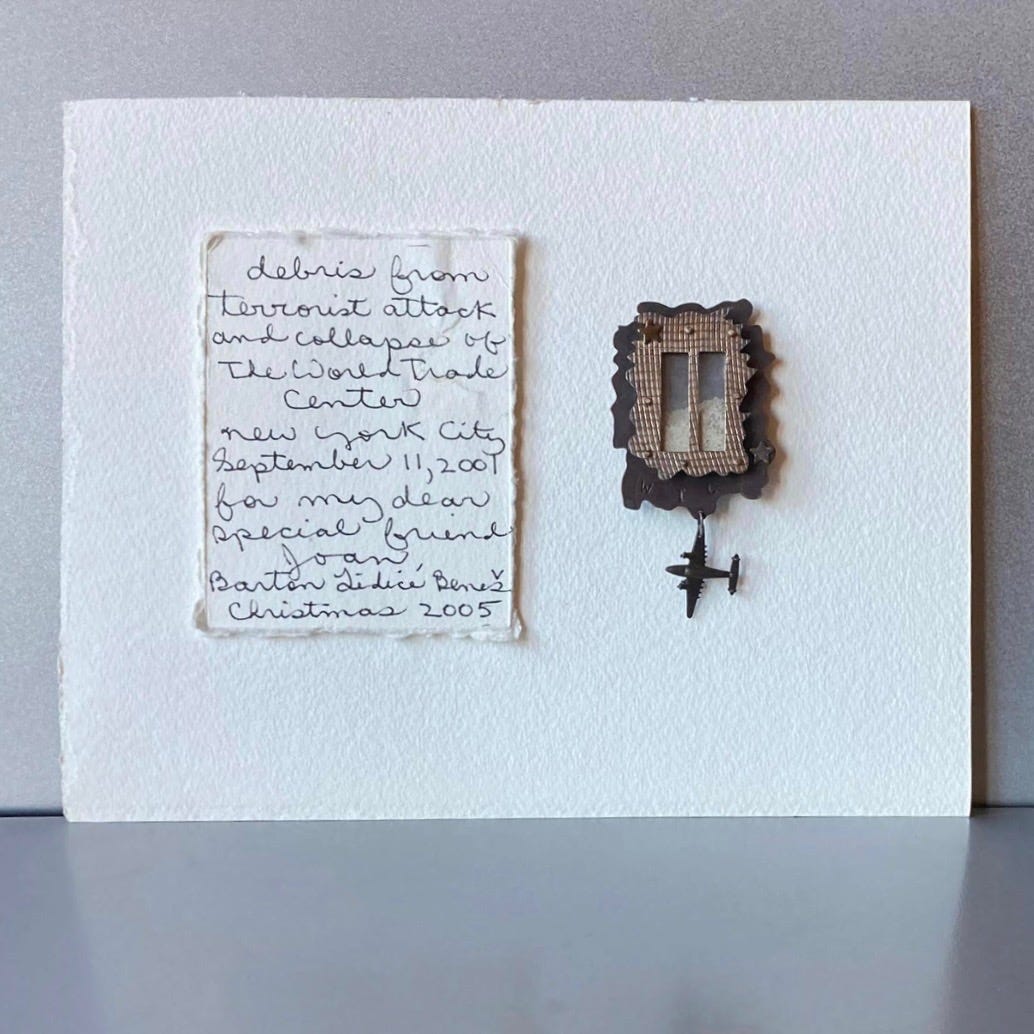 debris from
terrorist attack
and collapse of
The World Trade
Center
new york City
September 11, 2001
for my dear
special friend
Joan
Barton Lidicé Beneš
Christmas 2005
W T C